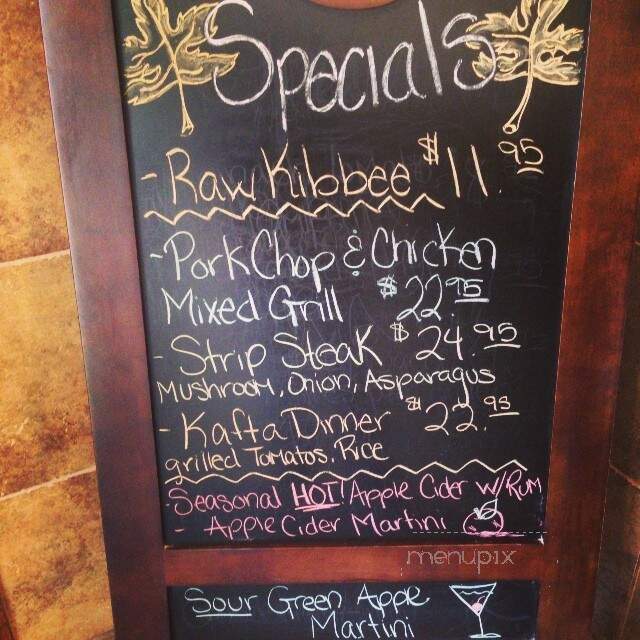 Specials
- Raw Kibbee $11.95
- Pork Chop & Chicken
Mixed Grill $22.95
- Strip Steak $24.95
Mushroom, Onion, Asparagus
- Kafta Dinner $22.95
grilled Tomatos, Rice
- Seasonal HOT! Apple Cider w/Rum
- Apple Cider Martini
menupix
Sour Green Apple
Martini